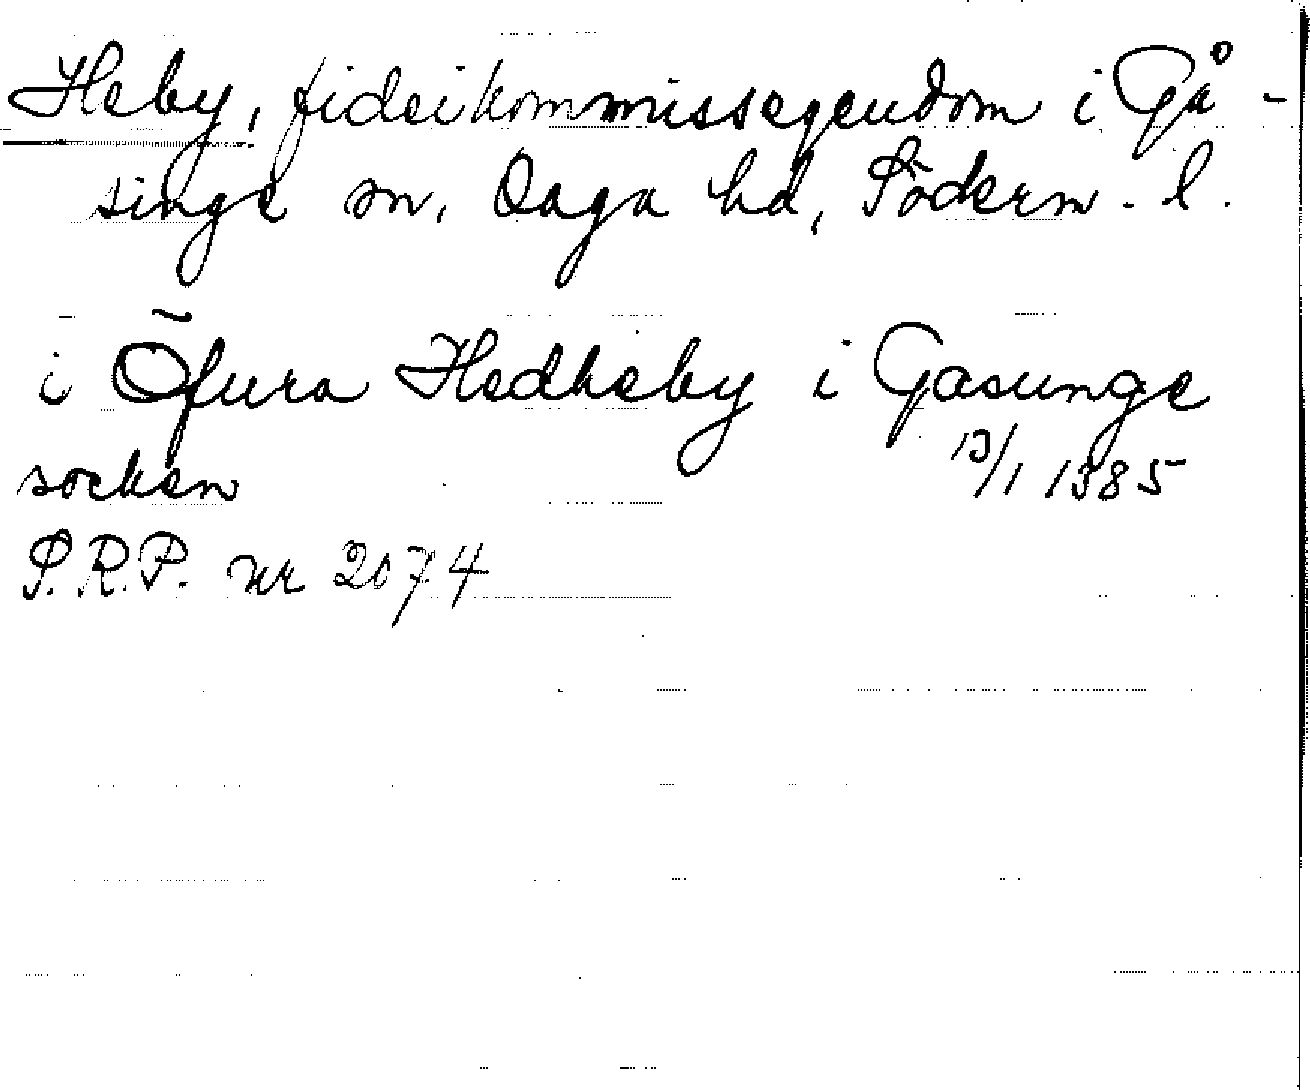 Heby, fideikommissegendom i Gå-
singe sn, Daga hd, Söderm. l.
i Öfura Hedheby i Gasunge
socken 13/1 1385
S.R.P. nr 2074